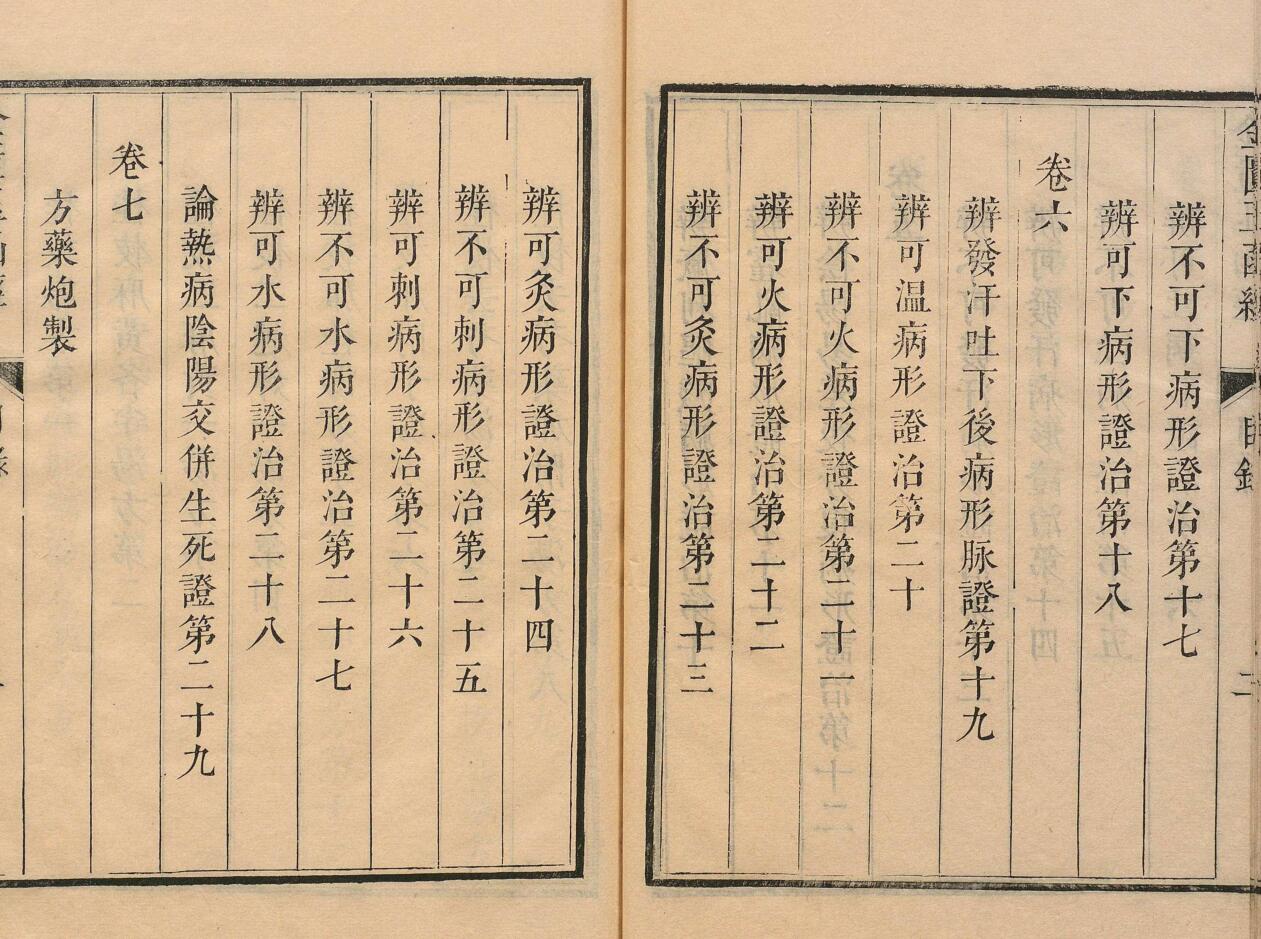 金匱玉函經 目錄 二
辨不可下病形證治第十七
辨可下病形證治第十八
卷六
辨發汗吐下後病形脉證第十九
辨可温病形證治第二十
辨不可火病形證治第二十一
辨可火病形證治第二十二
辨不可灸病形證治第二十三
辨可灸病形證治第二十四
辨不可刺病形證治第二十五
辨可刺病形證治第二十六
辨不可水病形證治第二十七
辨可水病形證治第二十八
論熱病陰陽交併生死證第二十九
卷七
方藥炮製